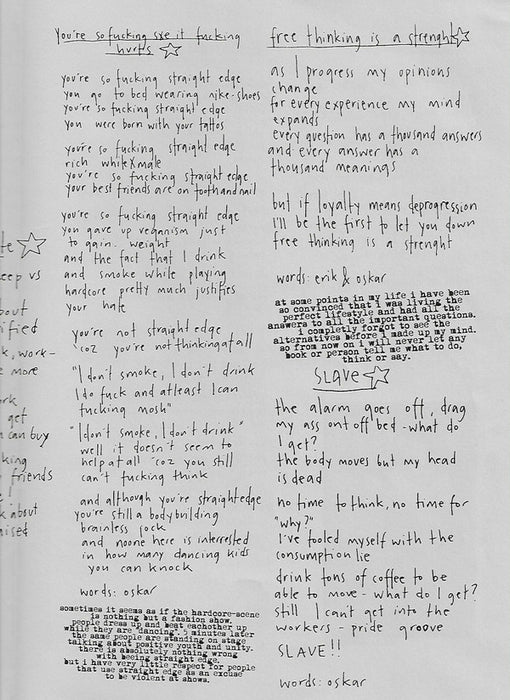 You're so fucking sxe it fucking
hurts
you're so fucking straight edge
you go to bed wearing nike-shoes
you're so fucking straight edge
you were born with your tattos
you're so fucking straight edge
rich whiteXmale
you're so fucking straight edge
your best friends are on toothandnail
you're so fucking straight edge
you gave up veganism just
to gain. weight
and the fact that I drink
and smoke while playing
hardcore pretty much justifies
your hate
you're not straight edge
'coz you're not thinking atall
"I don't smoke, I don't drink
I do fuck and atleast I can
fucking mosh"
"I don't smoke, I don't drink"
well it doesn't seem to
help atall 'coz you still
can't fucking think
and although you're straightedge
you're still a bodybuilding
brainless jock
and noone here is interrested
in how many dancing kids
you can knock
words: oskar
sometimes it seems as if the hardcore-scene
is nothing but a fashion show.
people dress up and beat eachother up
while they are "dancing". 5 minutes later
the same people are standing on stage
talking about positive youth and unity.
there is absolutely nothing wrong
with beeing straight edge.
but i have very little respect for people
that use straight edge as an excuse
to be violent at shows.
free thinking is a strenght
as I progress my opinions
change
for every experience my mind
expands
every question has a thousand answers
and every answer has a
thousand meanings
but if loyalty means deprogression
I'll be the first to let you down
free thinking is a strenght
words: erik & oskar
at some points in my life i have been
so convinced that i was living the
perfect lifestyle and had all the
answers to all the important questions.
i completly forgot to see the
alternatives before i made up my mind.
so from now on i will never let any
book or person tell me what to do,
think or say.
SLAVE
the alarm goes off, drag
my ass ont off bed - what do
I get?
the body moves but my head
is dead
no time to think, no time for
"why?"
I've fooled myself with the
consumption lie
drink tons of coffee to be
able to move - what do I get?
still I can't get into the
workers - pride groove
SLAVE!!
words: oskar
eep vs
bout
ified
k, work-
e more
ork
get
can buy
king
friends
k about
aised